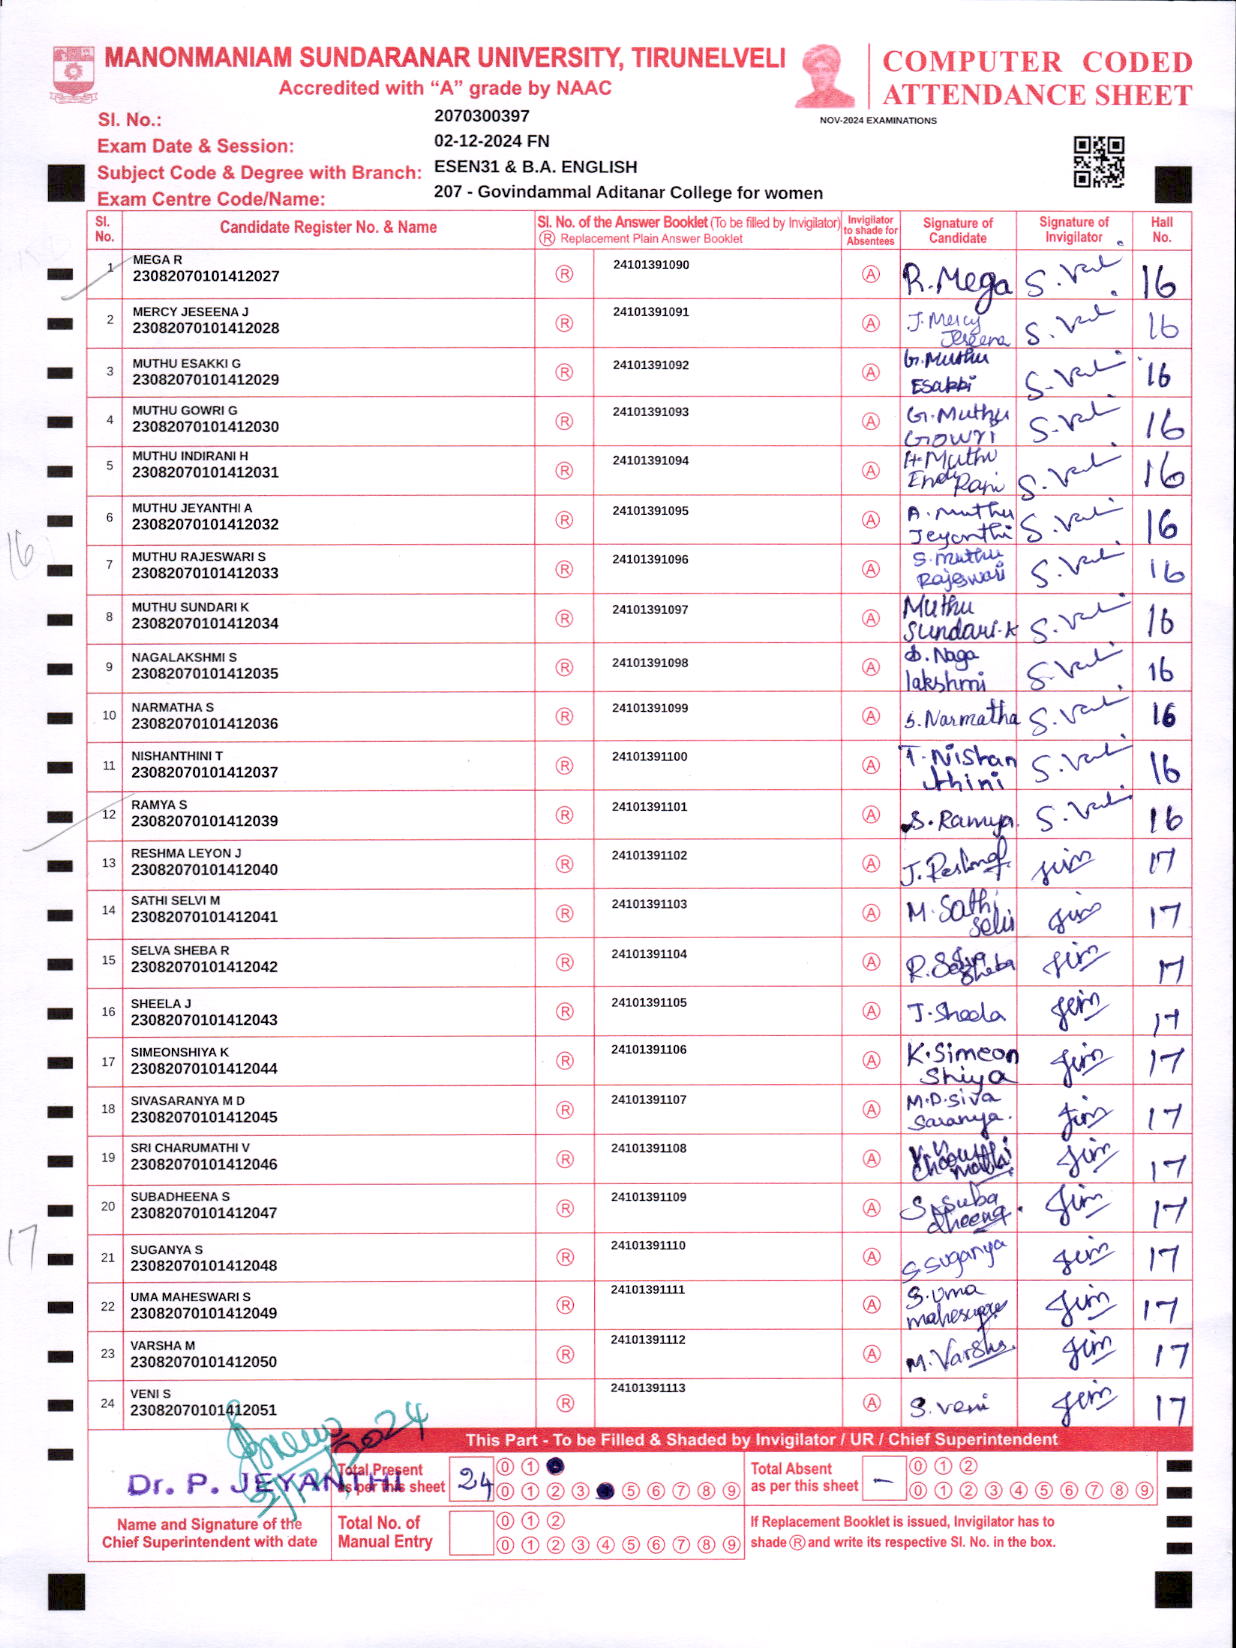 MANONMANIAM SUNDARANAR UNIVERSITY, TIRUNELVELI
Accredited with “A” grade by NAAC
COMPUTER CODED
ATTENDANCE SHEET
NOV-2024 EXAMINATIONS
Sl. No.: 2070300397
Exam Date & Session: 02-12-2024 FN
Subject Code & Degree with Branch: ESEN31 & B.A. ENGLISH
Exam Centre Code/Name: 207 - Govindammal Aditanar College for women
Sl. No. Candidate Register No. & Name Sl. No. of the Answer Booklet (To be filled by Invigilator) Ⓡ Replacement Plain Answer Booklet Invigilator to shade for Absentees Signature of Candidate Signature of Invigilator Hall No.
1 MEGA R 23082070101412027 Ⓡ 24101391090 Ⓐ R.Mega S. Vali 16
2 MERCY JESEENA J 23082070101412028 Ⓡ 24101391091 Ⓐ J. Mercy Jeseena S. Vali 16
3 MUTHU ESAKKI G 23082070101412029 Ⓡ 24101391092 Ⓐ G.Muthu Esakki S. Vali 16
4 MUTHU GOWRI G 23082070101412030 Ⓡ 24101391093 Ⓐ G.Muthu Gowri S. Vali 16
5 MUTHU INDIRANI H 23082070101412031 Ⓡ 24101391094 Ⓐ H.Muthu S. Vali 16
6 MUTHU JEYANTHI A 23082070101412032 Ⓡ 24101391095 Ⓐ A. Muthu Jeyanthi S. Vali 16
7 MUTHU RAJESWARI S 23082070101412033 Ⓡ 24101391096 Ⓐ S. Muthu Rajeswari S. Vali 16
8 MUTHU SUNDARI K 23082070101412034 Ⓡ 24101391097 Ⓐ Muthu Sundari.K S. Vali 16
9 NAGALAKSHMI S 23082070101412035 Ⓡ 24101391098 Ⓐ S. Naga lakshmi S. Vali 16
10 NARMATHA S 23082070101412036 Ⓡ 24101391099 Ⓐ S. Narmatha S. Vali 16
11 NISHANTHINI T 23082070101412037 Ⓡ 24101391100 Ⓐ T. Nishan thini S. Vali 16
12 RAMYA S 23082070101412039 Ⓡ 24101391101 Ⓐ S. Ramya S. Vali 16
13 RESHMA LEYON J 23082070101412040 Ⓡ 24101391102 Ⓐ 17
14 SATHI SELVI M 23082070101412041 Ⓡ 24101391103 Ⓐ M. Sathi Selvi 17
15 SELVA SHEBA R 23082070101412042 Ⓡ 24101391104 Ⓐ R. Selva Sheba 17
16 SHEELA J 23082070101412043 Ⓡ 24101391105 Ⓐ J. Sheela 17
17 SIMEONSHIYA K 23082070101412044 Ⓡ 24101391106 Ⓐ K. Simeon Shiya 17
18 SIVASARANYA M D 23082070101412045 Ⓡ 24101391107 Ⓐ M.D.Siva Saranya. 17
19 SRI CHARUMATHI V 23082070101412046 Ⓡ 24101391108 Ⓐ 17
20 SUBADHEENA S 23082070101412047 Ⓡ 24101391109 Ⓐ S. Suba dheena. 17
21 SUGANYA S 23082070101412048 Ⓡ 24101391110 Ⓐ S. Suganya 17
22 UMA MAHESWARI S 23082070101412049 Ⓡ 24101391111 Ⓐ S. Uma 17
23 VARSHA M 23082070101412050 Ⓡ 24101391112 Ⓐ M. Varsha. 17
24 VENI S 23082070101412051 Ⓡ 24101391113 Ⓐ S. veni 17
16
17
This Part - To be Filled & Shaded by Invigilator / UR / Chief Superintendent
Dr. P. JEYANTHI
Total Present as per this sheet 24 0 1
0 1 2 3 5 6 7 8 9
Total Absent as per this sheet – 0 1 2
0 1 2 3 4 5 6 7 8 9
Name and Signature of the
Chief Superintendent with date
Total No. of Manual Entry 0 1 2
0 1 2 3 4 5 6 7 8 9
If Replacement Booklet is issued, Invigilator has to
shade Ⓡ and write its respective Sl. No. in the box.